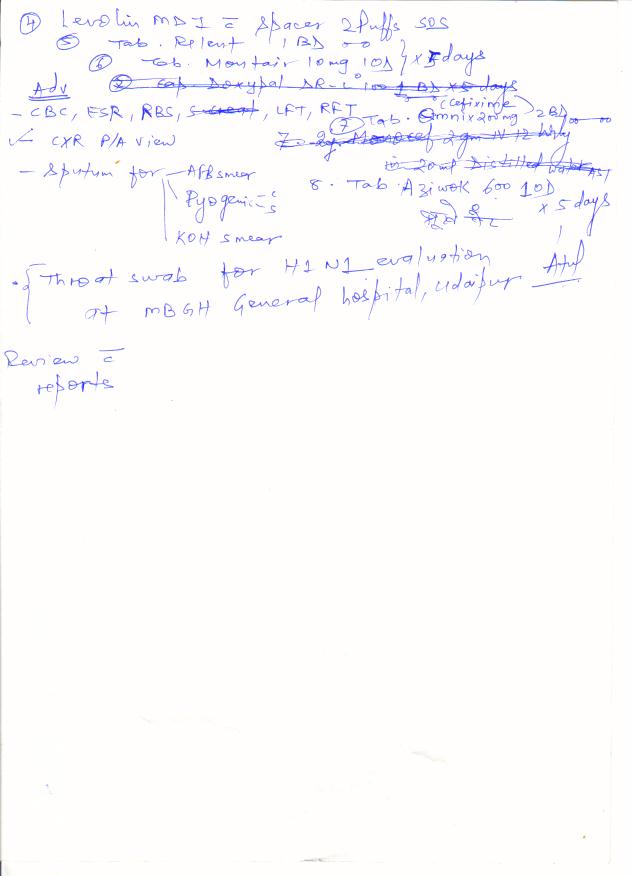 ④ Levolin MDI c̄ Spacer 2 Puffs SOS
⑤ Tab. Relent 1 BD
⑥ Tab. Montair 10mg 1OD } x 5 days
Adv
⑦ Cap Doxypal DR-L 100 1 BD x 5 days
- CBC, ESR, RBS, S creat, LFT, RFT
(Cefixime)
⑦ Tab. Omnix 200mg 2BD
✓ CXR P/A View
7. Monocef 2 gm IV 12 hrly
in 20ml Distilled Water AST
- Sputum for - AFB smear
Pyogenic c/s
KOH smear
8. Tab. Aziwok 600 1OD
x 5 days
{ Throat swab for H1N1 evaluation
at MBGH General hospital, Udaipur
Atul
Review c̄
reports